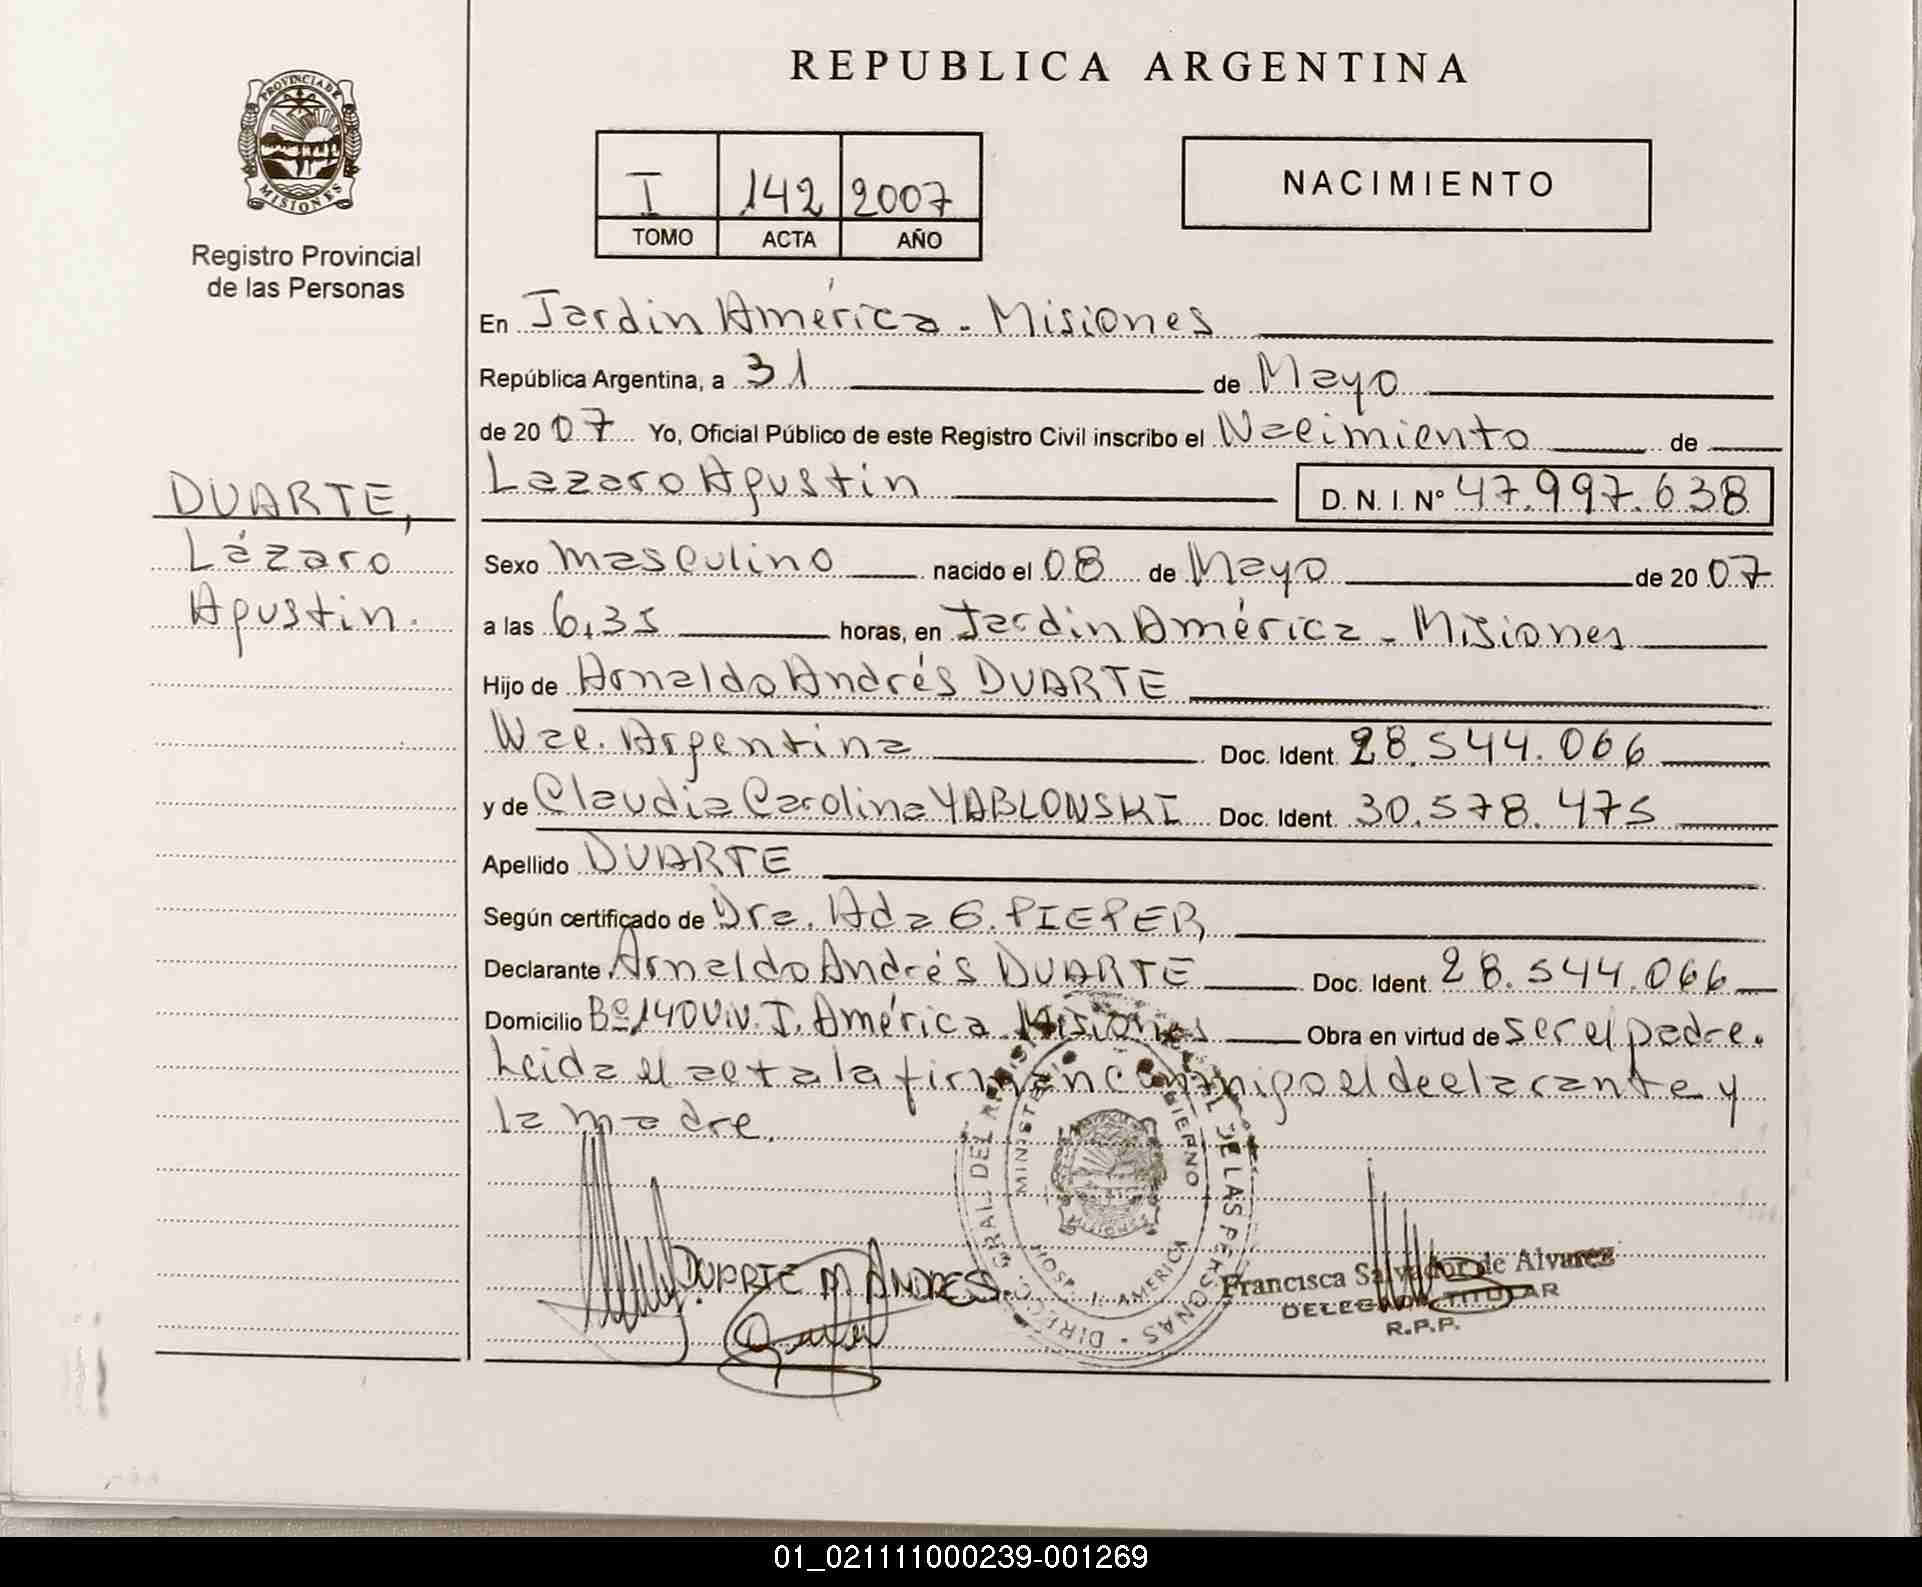 REPUBLICA ARGENTINA
PROVINCIA DE
MISIONES
Registro Provincial
de las Personas
I 142 2007
TOMO ACTA AÑO
NACIMIENTO
En Jardin América - Misiones
República Argentina, a 31 de Mayo
de 2007 Yo, Oficial Público de este Registro Civil inscribo el Nacimiento de
Lazaro Agustin D. N. I. Nº 47.997.638
DUARTE,
Lázaro
Agustin.
Sexo masculino nacido el 08 de Mayo de 2007
a las 6,35 horas, en Jardin América - Misiones
Hijo de Arnaldo Andrés DUARTE
Nac. Argentina Doc. Ident. 28.544.066
y de Claudia Carolina YABLONSKI Doc. Ident. 30.578.475
Apellido DUARTE
Según certificado de Dra. Ada G. PIEPER
Declarante Arnaldo Andrés DUARTE Doc. Ident. 28.544.066
Domicilio Bº 140 Viv. J. América Misiones Obra en virtud de ser el padre.
Leida el acta la firman conmigo el declarante y
la madre.
DUARTE A. ANDRES.
MINISTERIO GOBIERNO
HOSP. J. AMERICA
DE LAS PERSONAS
Francisca Salvador de Alvarez
DELEGADA TITULAR
R.P.P.
01_021111000239-001269